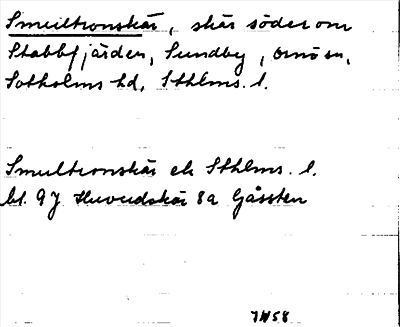 Smultronskär, skär söder om
Stabbfjärden, Sundby, Ornö sn,
Sotholms hd, Sthlms. l.
Smultronskär ek Sthlms. l.
bl. 97 Huvudskär 8a Gåssten
7/1158